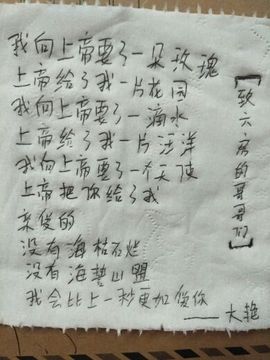 我向上帝要了一朵玫瑰
上帝给了我一片花园
我向上帝要了一滴水
上帝给了我一片汪洋
我向上帝要了一个天使
上帝把你给了我
亲爱的
没有海枯石烂
没有海誓山盟
我会比上一秒更加爱你
——大艳
【致六房的哥哥们】